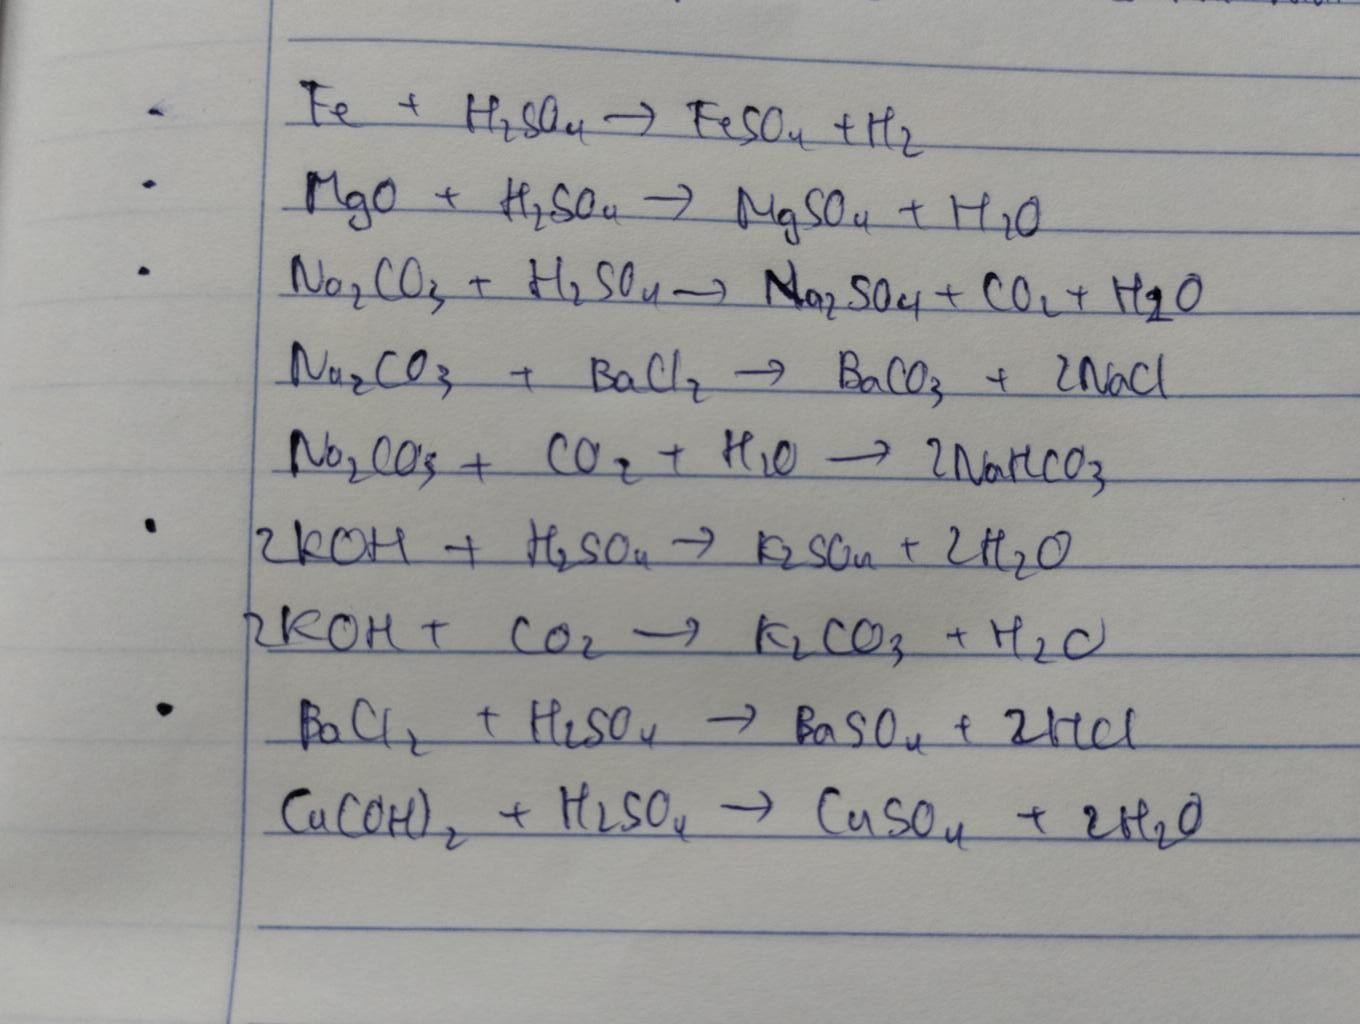 Fe + H₂SO₄ → FeSO₄ + H₂
MgO + H₂SO₄ → MgSO₄ + H₂O
Na₂CO₃ + H₂SO₄ → Na₂SO₄ + CO₂ + H₂O
Na₂CO₃ + BaCl₂ → BaCO₃ + 2NaCl
Na₂CO₃ + CO₂ + H₂O → 2NaHCO₃
2KOH + H₂SO₄ → K₂SO₄ + 2H₂O
2KOH + CO₂ → K₂CO₃ + H₂O
BaCl₂ + H₂SO₄ → BaSO₄ + 2HCl
Cu(OH)₂ + H₂SO₄ → CuSO₄ + 2H₂O